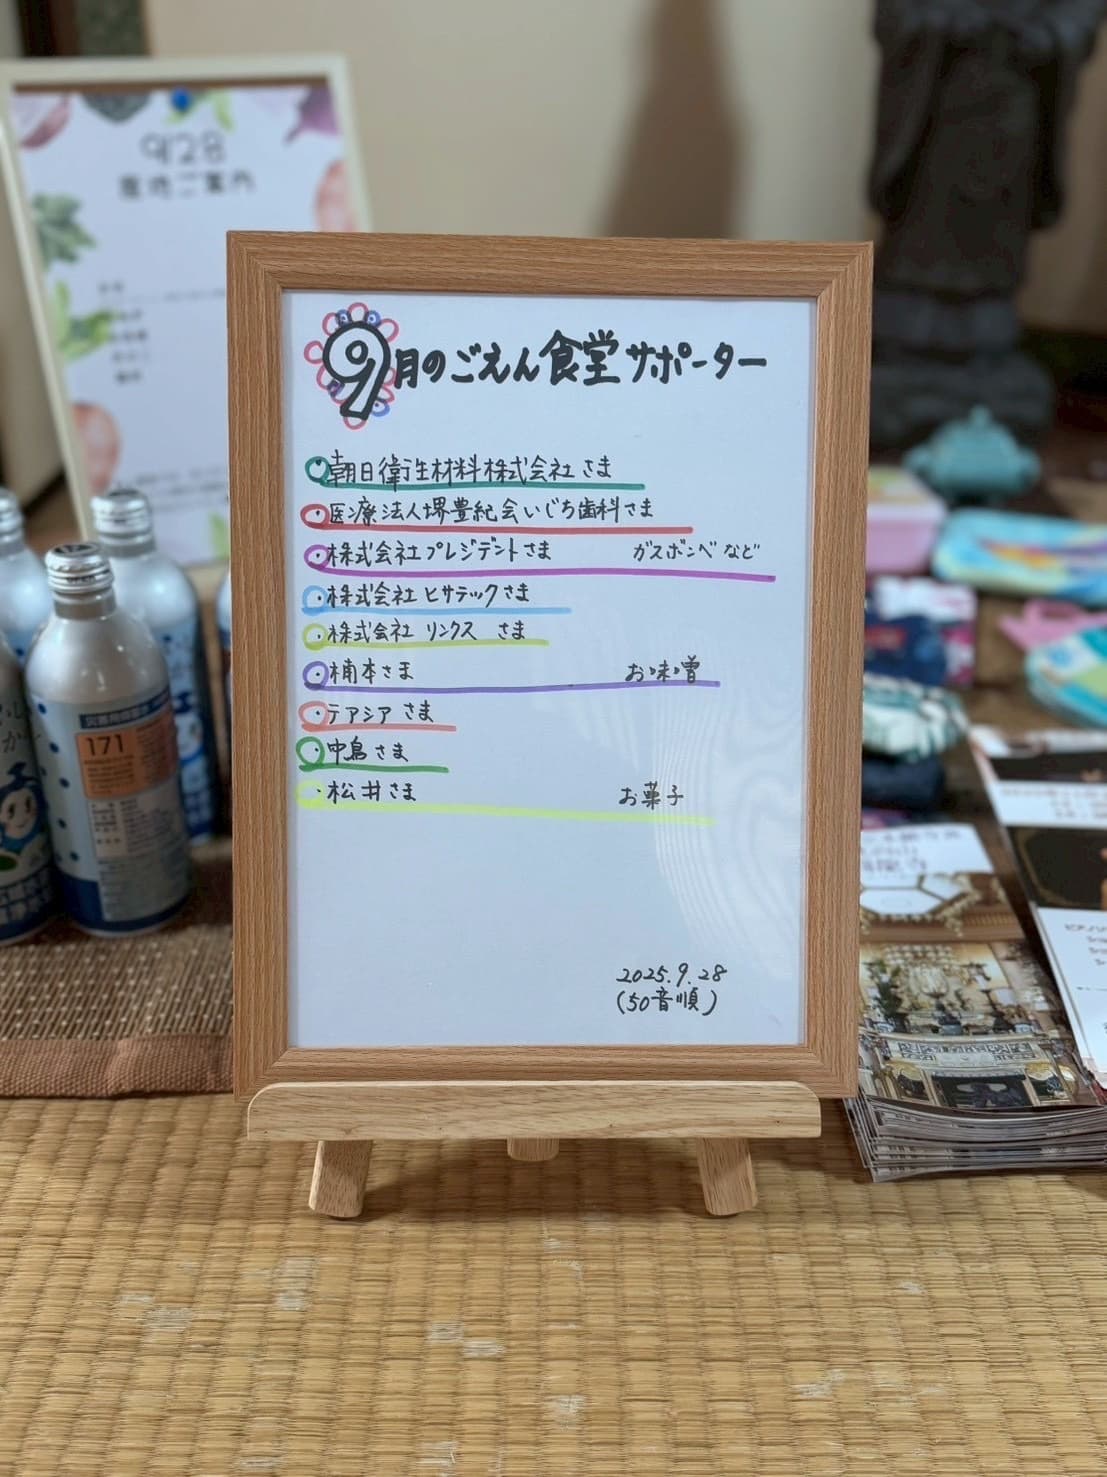 9/28
9月のごえん食堂サポーター
・朝日衛生材料株式会社さま
・医療法人堺豊紀会いじち歯科さま
・株式会社プレジデントさま ガスボンベなど
・株式会社ヒサテックさま
・株式会社リンクス さま
・楠本さま お味噌
・テアシアさま
・中島さま
・松井さま お菓子
2025.9.28
(50音順)
171